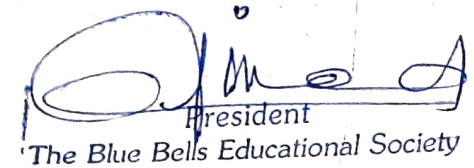 President
'The Blue Bells Educational Society